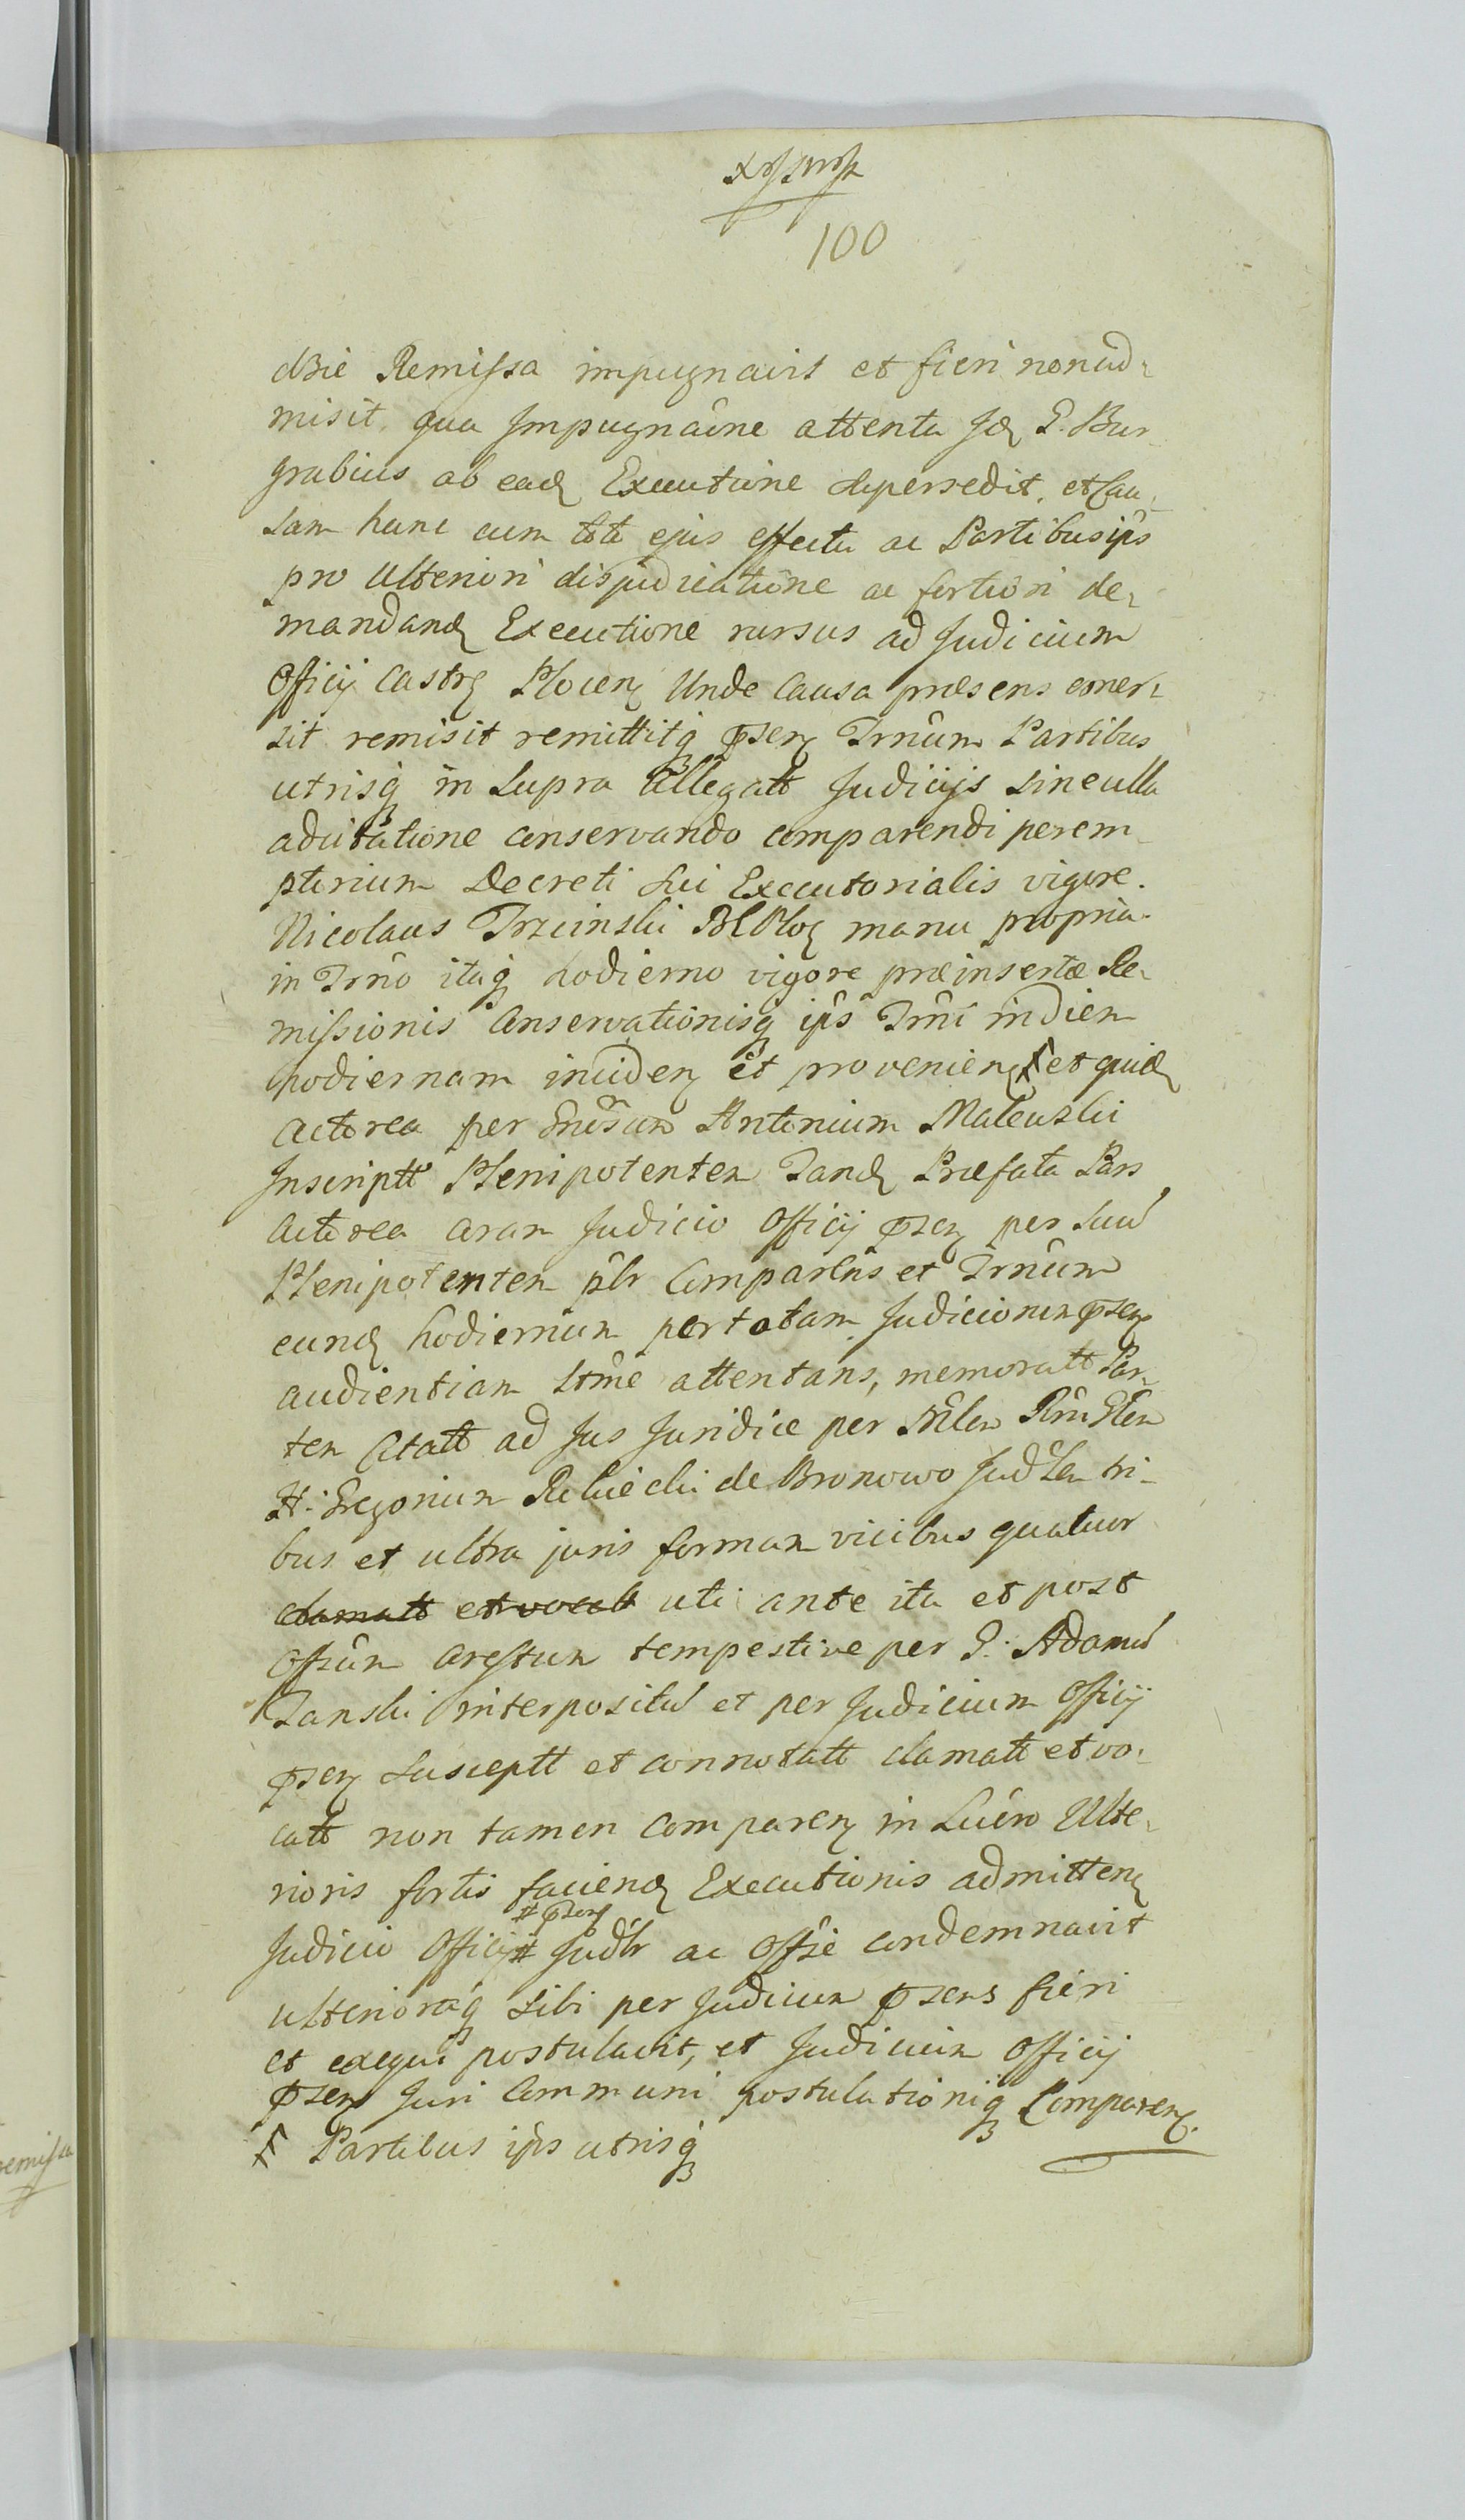 100
dzie Remissa impugnavit et fieri non ad-
misit, qua Impugnâone attenta Id. G. Bur-
grabius ab ead. Executione supersedit, et Cau-
sam hanc cum toto ejus effectu ac Partibus ips̃
pro Ulteriori disjudicatione ac fortiori de-
mandand. Executione rursus ad Judicium
Officij Castr. Plocen. Unde Causa præsens emer-
sit remisit remittitq. prsen. Trñum Partibus
utrisq. in Supra Allegatt Judicijs sine ulla
adcitatione conservando comparendi perem-
ptorium Decreti sui Executorialis vigore.
Nicolaus Trzcinski BCPloc. manu propria.
in Trño itaq. hodierno vigore præinsertæ Re-
missionis Conservationisq. ips̃ Trñi in diem
hodiernam inciden. et provenien. et quid.
Actorea per Gñosum Antonium Mateuski
Inscriptt Plenipotentem Tand. Præfata Pars
Actorea coram Judicio Officij prsen. per suũ
Plenipotentem plr Comparens et Trñum
eund. hodiernum per totam Judiciorum prsen.
audientiam lttme attentans, memoratt Par-
tem Citatt ad Jus Juridice per Mlem Rm Glem
H: Gregorium Rokicki de Bronowo Judlem tri-
bus et ultra juris formam vicibus quatuor
clamatt et vocatt uti ante ita et post
Offsum Arestum tempestive per G: Adamũ
Zanski interpositũ et per Judicium Officij
prsen. susceptt et connotatt clamatt et vo-
catt non tamen Comparen. in Lucro Ulte-
rioris fortis faciend. Executionis admitten.
# prsen.
Judicio Officij # Judlr ac Offse condemnavit
ulterioraq. sibi per Judicium prsens fieri
et exequi postulavit, et Judicium Officij
prsen. Juri Communi postulationiq. Comparen.
Partibus ips̃ utrisq.